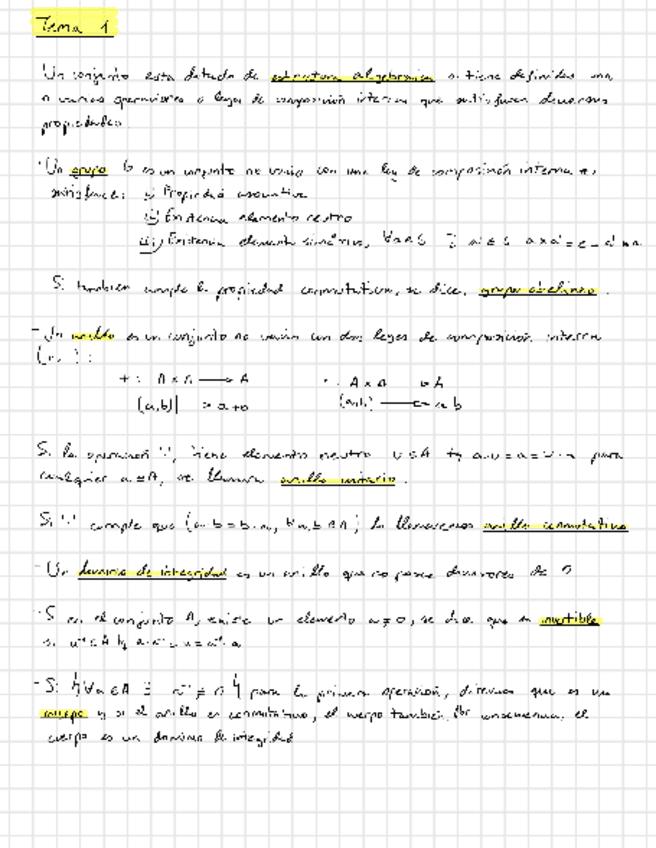 Tema 1
Un conjunto esta dotado de estructura algebraica si tiene definidas una
o varias operaciones o leyes de composición interna que satisfacen diversas
propiedades.
Un grupo G es un conjunto no vacio con una ley de composición interna
satisface: i) Propiedad asociativa
ii) Existencia elemento neutro
iii) Existencia elemento simétrico,
Si tambien cumple la propiedad conmutativa, se dice, grupo abeliano.
- Un anillo es un conjunto no vacio con dos leyes de composición interna
+ : A x A → A
(a,b) a+b
Si la operación "·", tiene elemento neutro para
cualquier a ∈ A, se llamara anillo unitario.
Si "·" cumple que lo llamaremos anillo conmutativo
- Un dominio de integridad es un anillo que no posee divisores de 0
- Si en el conjunto A, existe un elemento a ≠ 0, se dice que es invertible
- Si para la primera operación, diremos que es un
cuerpo y si el anillo es conmutativo, el cuerpo también. Por consecuencia, el
cuerpo es un dominio de integridad